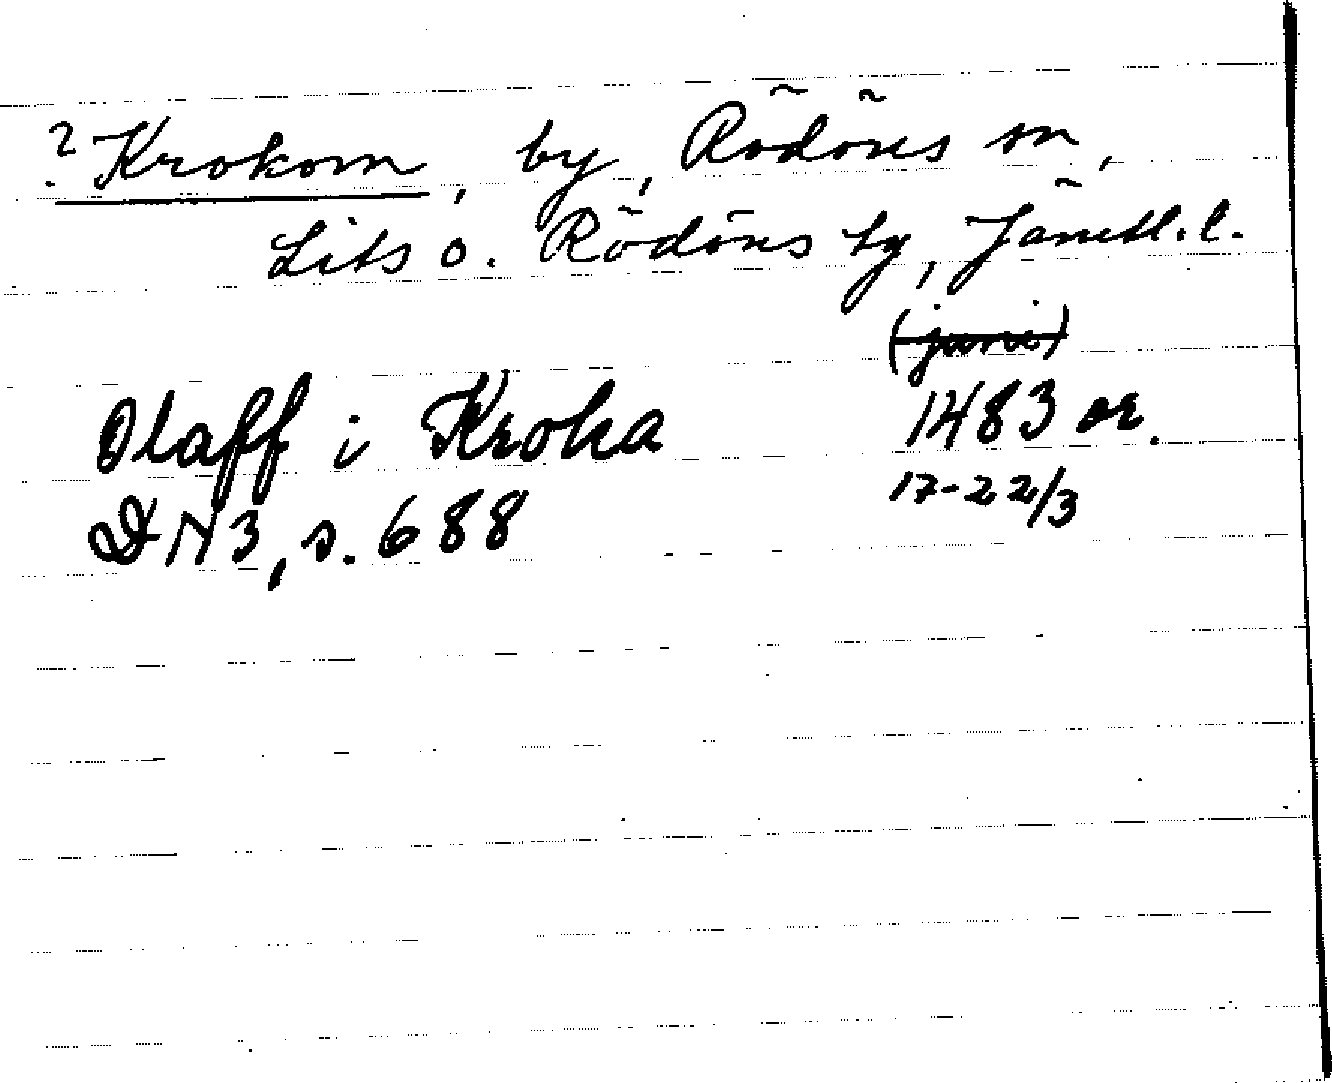 ? Krokom, by, Rödöns sn,
Lits o. Rödöns tg, Jämtl. l.
(juni)
Olaff i Kroka 1483 or.
DN 3, s. 688 17-22/3